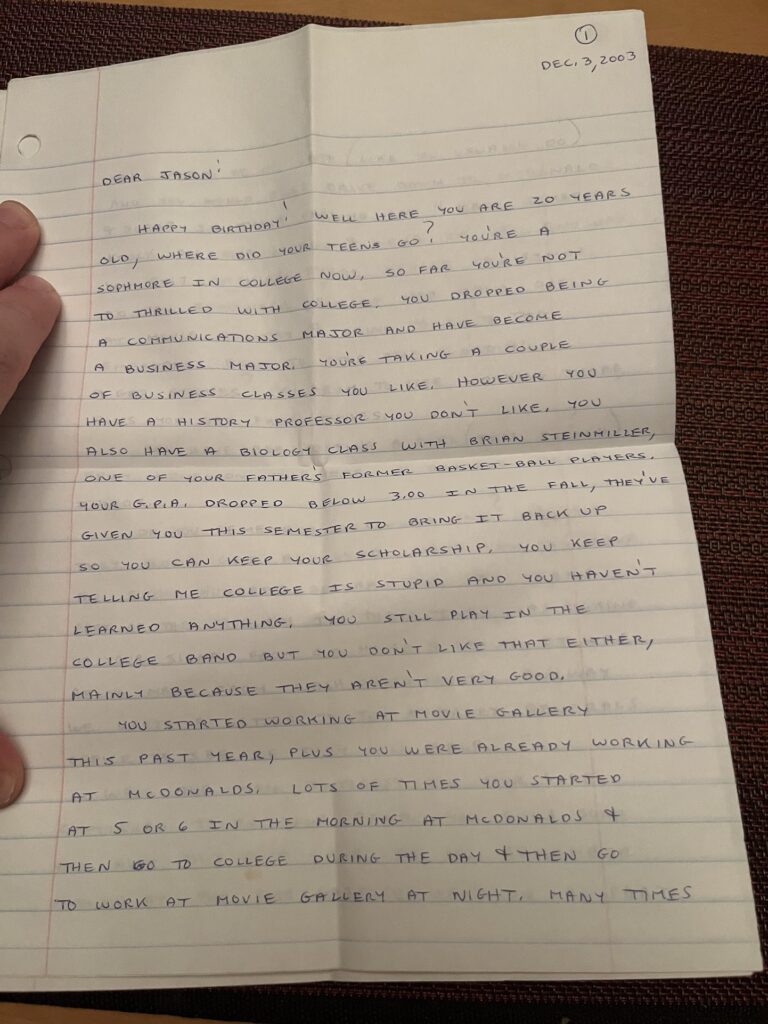 ①
DEC. 3, 2003
DEAR JASON!
HAPPY BIRTHDAY! WELL HERE YOU ARE 20 YEARS
OLD, WHERE DID YOUR TEENS GO? YOU'RE A
SOPHMORE IN COLLEGE NOW, SO FAR YOU'RE NOT
TO THRILLED WITH COLLEGE. YOU DROPPED BEING
A COMMUNICATIONS MAJOR AND HAVE BECOME
A BUSINESS MAJOR. YOU'RE TAKING A COUPLE
OF BUSINESS CLASSES YOU LIKE. HOWEVER YOU
HAVE A HISTORY PROFESSOR YOU DON'T LIKE. YOU
ALSO HAVE A BIOLOGY CLASS WITH BRIAN STEINMILLER,
ONE OF YOUR FATHER'S FORMER BASKET-BALL PLAYERS.
YOUR G.P.A. DROPPED BELOW 3.00 IN THE FALL, THEY'VE
GIVEN YOU THIS SEMESTER TO BRING IT BACK UP
SO YOU CAN KEEP YOUR SCHOLARSHIP. YOU KEEP
TELLING ME COLLEGE IS STUPID AND YOU HAVEN'T
LEARNED ANYTHING. YOU STILL PLAY IN THE
COLLEGE BAND BUT YOU DON'T LIKE THAT EITHER,
MAINLY BECAUSE THEY AREN'T VERY GOOD.
YOU STARTED WORKING AT MOVIE GALLERY
THIS PAST YEAR, PLUS YOU WERE ALREADY WORKING
AT MCDONALDS. LOTS OF TIMES YOU STARTED
AT 5 OR 6 IN THE MORNING AT MCDONALDS &
THEN GO TO COLLEGE DURING THE DAY & THEN GO
TO WORK AT MOVIE GALLERY AT NIGHT. MANY TIMES